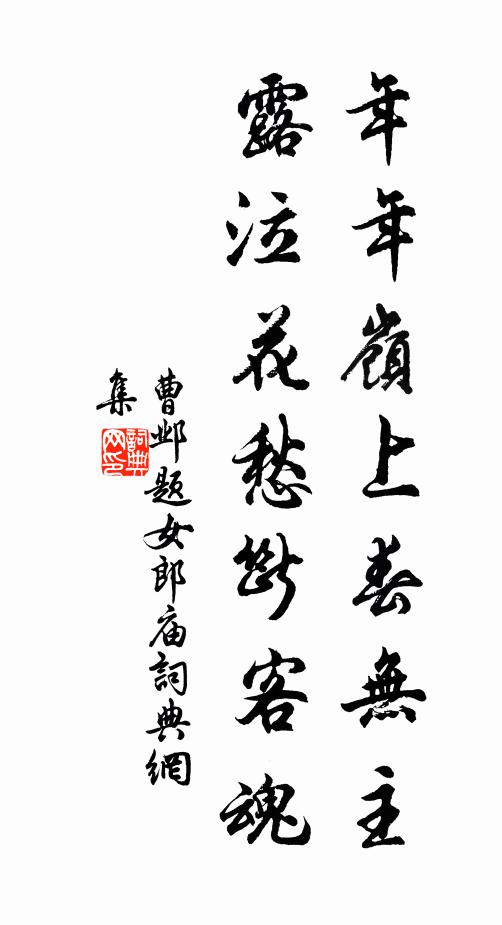 年年嶺上春無主
露泣花愁斷客魂
曹邺題女郎庙詞典網
集
詞典
网印